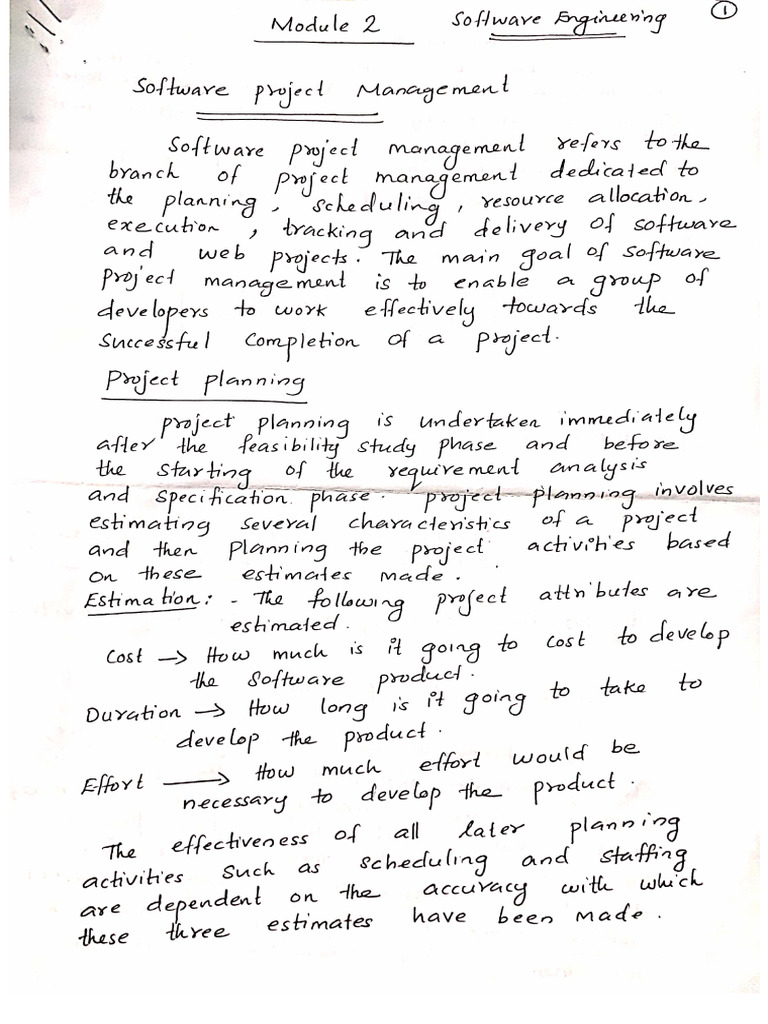 Module 2 Software Engineering 1
Software project Management
Software project management refers to the
branch of project management dedicated to
the planning, scheduling, resource allocation,
execution, tracking and delivery of software
and web projects. The main goal of software
project management is to enable a group of
developers to work effectively towards the
successful completion of a project.
Project planning
project planning is undertaken immediately
after the feasibility study phase and before
the starting of the requirement analysis
and specification phase. project planning involves
estimating several characteristics of a project
and then planning the project activities based
on these estimates made.
Estimation: - The following project attributes are
estimated.
Cost → How much is it going to cost to develop
the software product.
Duration → How long is it going to take to
develop the product.
Effort → How much effort would be
necessary to develop the product.
The effectiveness of all later planning
activities such as scheduling and staffing
are dependent on the accuracy with which
these three estimates have been made.